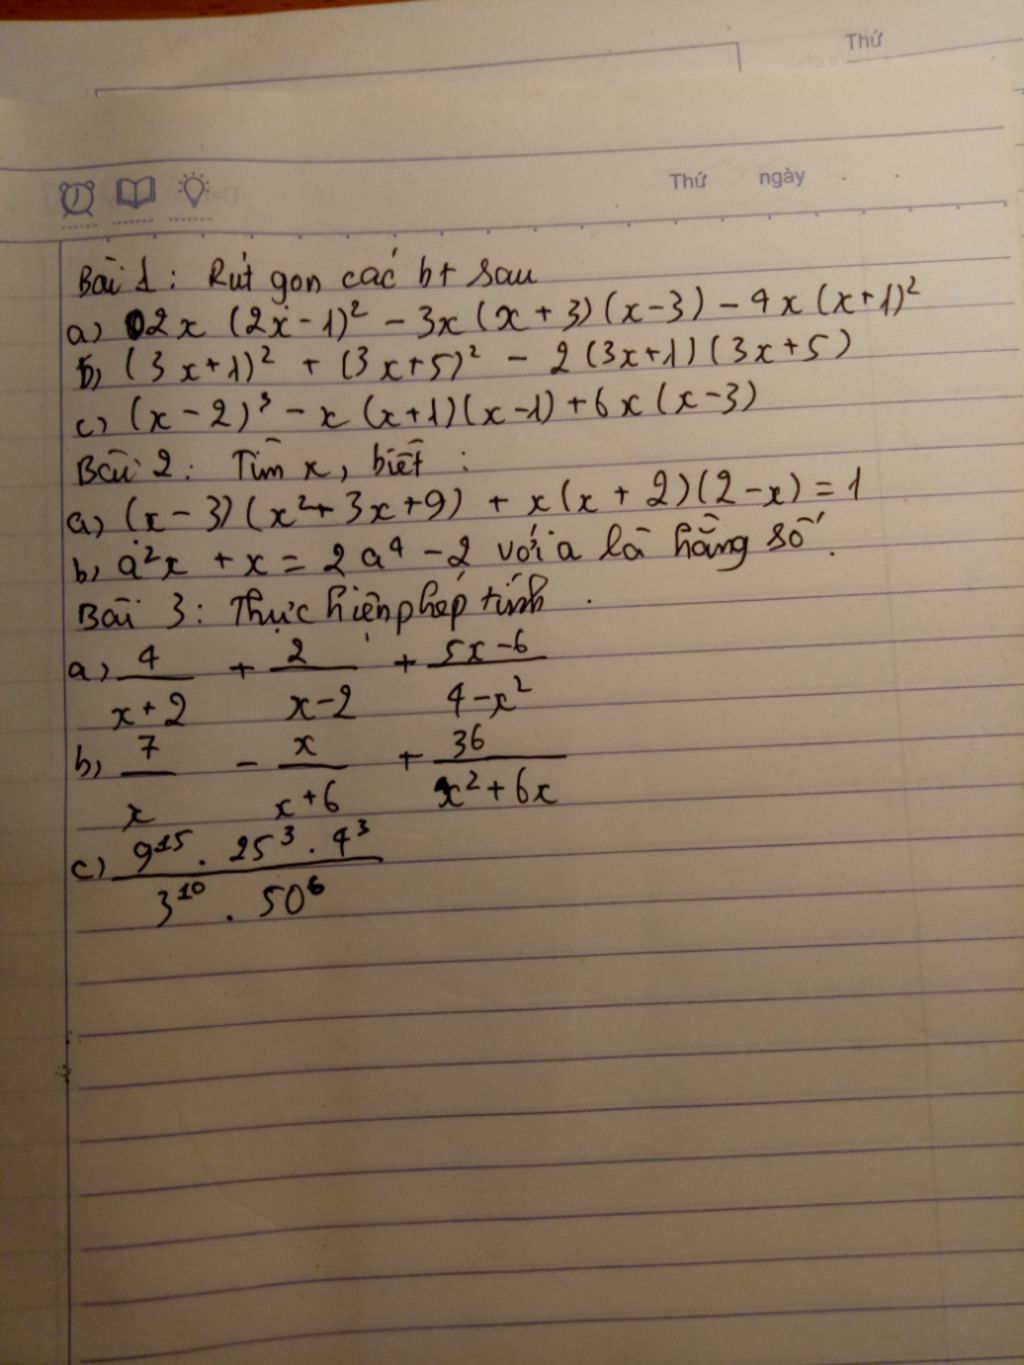 Thứ
Thứ ngày
Bài 1: Rút gọn các bt sau
a) 2x (2x-1)² - 3x(x+3)(x-3) - 4x(x+1)²
b) (3x+1)² + (3x+5)² - 2(3x+1)(3x+5)
c) (x-2)³ - x(x+1)(x-1)+6x(x-3)
Bài 2: Tìm x, biết :
a) (x-3)(x²+3x+9) + x(x+2)(2-x)=1
b) a²x + x = 2a⁴ -2 với a là hằng số.
Bài 3: Thực hiện phép tính.
a) 4/(x+2) + 2/(x-2) + (5x-6)/(4-x²)
b) 7/x - x/(x+6) + 36/(x²+6x)
c) (9¹⁵ . 25³ . 4³)/(3¹⁰ . 50⁶)